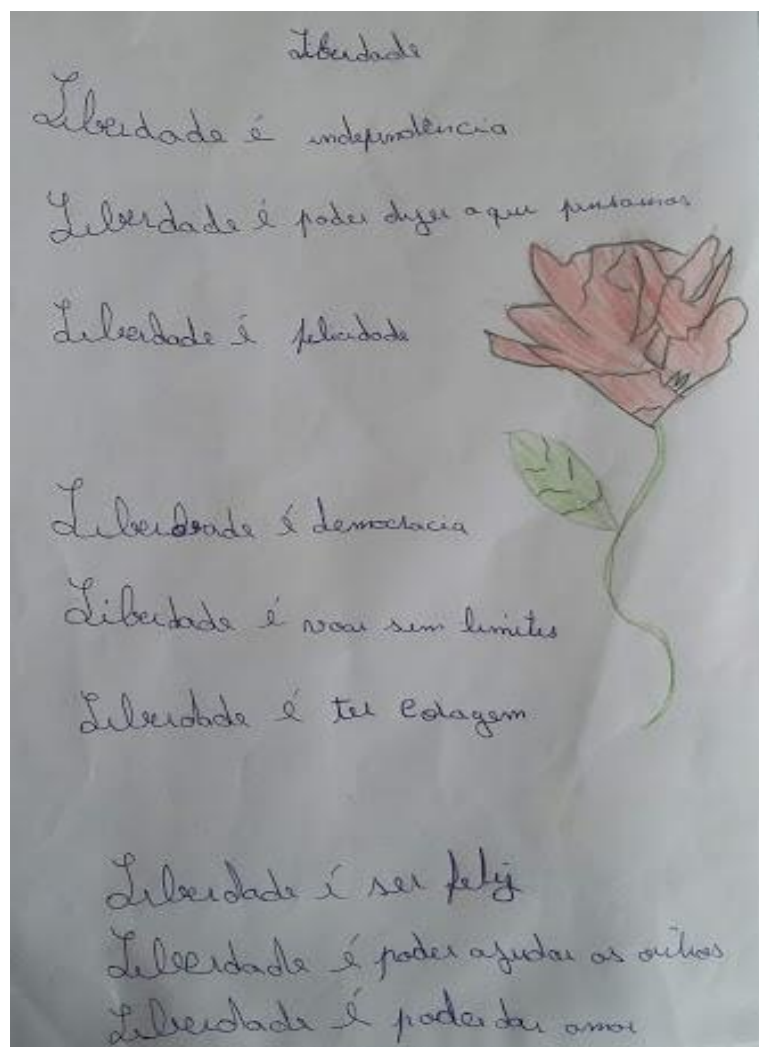 Liberdade
Liberdade é independência
Liberdade é poder dizer o que pensamos
Liberdade é felicidade
Liberdade é democracia
Liberdade é voar sem limites
Liberdade é ter coragem
Liberdade é ser feliz
Liberdade é poder ajudar os outros
Liberdade é poder dar amor